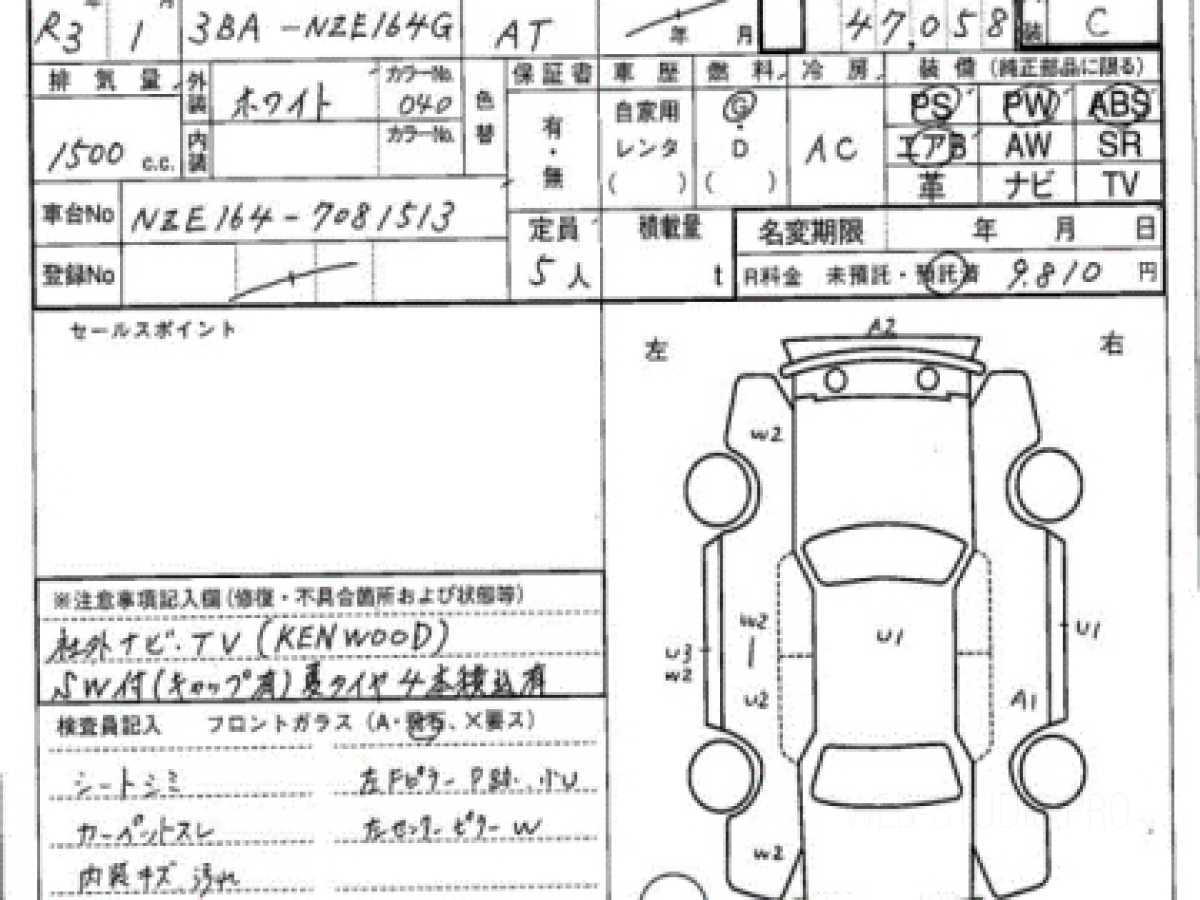 R3 年 1 月 3BA-NZE164G AT 年 月 47,058 装 C
排気量 外装 ホワイト カラーNo. 040 色替 保証書 車歴 燃料 冷房 装備 (純正部品に限る)
1500 c.c. 内装 カラーNo. 有・無 自家用 レンタ ( ) G・D ( ) AC PS PW ABS
エアB AW SR
革 ナビ TV
車台No NZE164-7081513 定員 5人 積載量 t 名変期限 年 月 日
登録No R料金 未預託・預託済 9,810 円
セールスポイント
左 A2 右
W2
※注意事項記入欄(修復・不具合箇所および状態等)
社外ナビ・TV (KENWOOD)
SW付(キャップ有)夏タイヤ4本積込有
W2 U1 U1
U3
W2
U2 A1
検査員記入 フロントガラス (A・飛石、X要ス)
シートシミ 左Fピラー P跡、小U
カーペットスレ 左センターピラーW
内装キズ 汚れ
W2
WEB-STUDIO.PRO